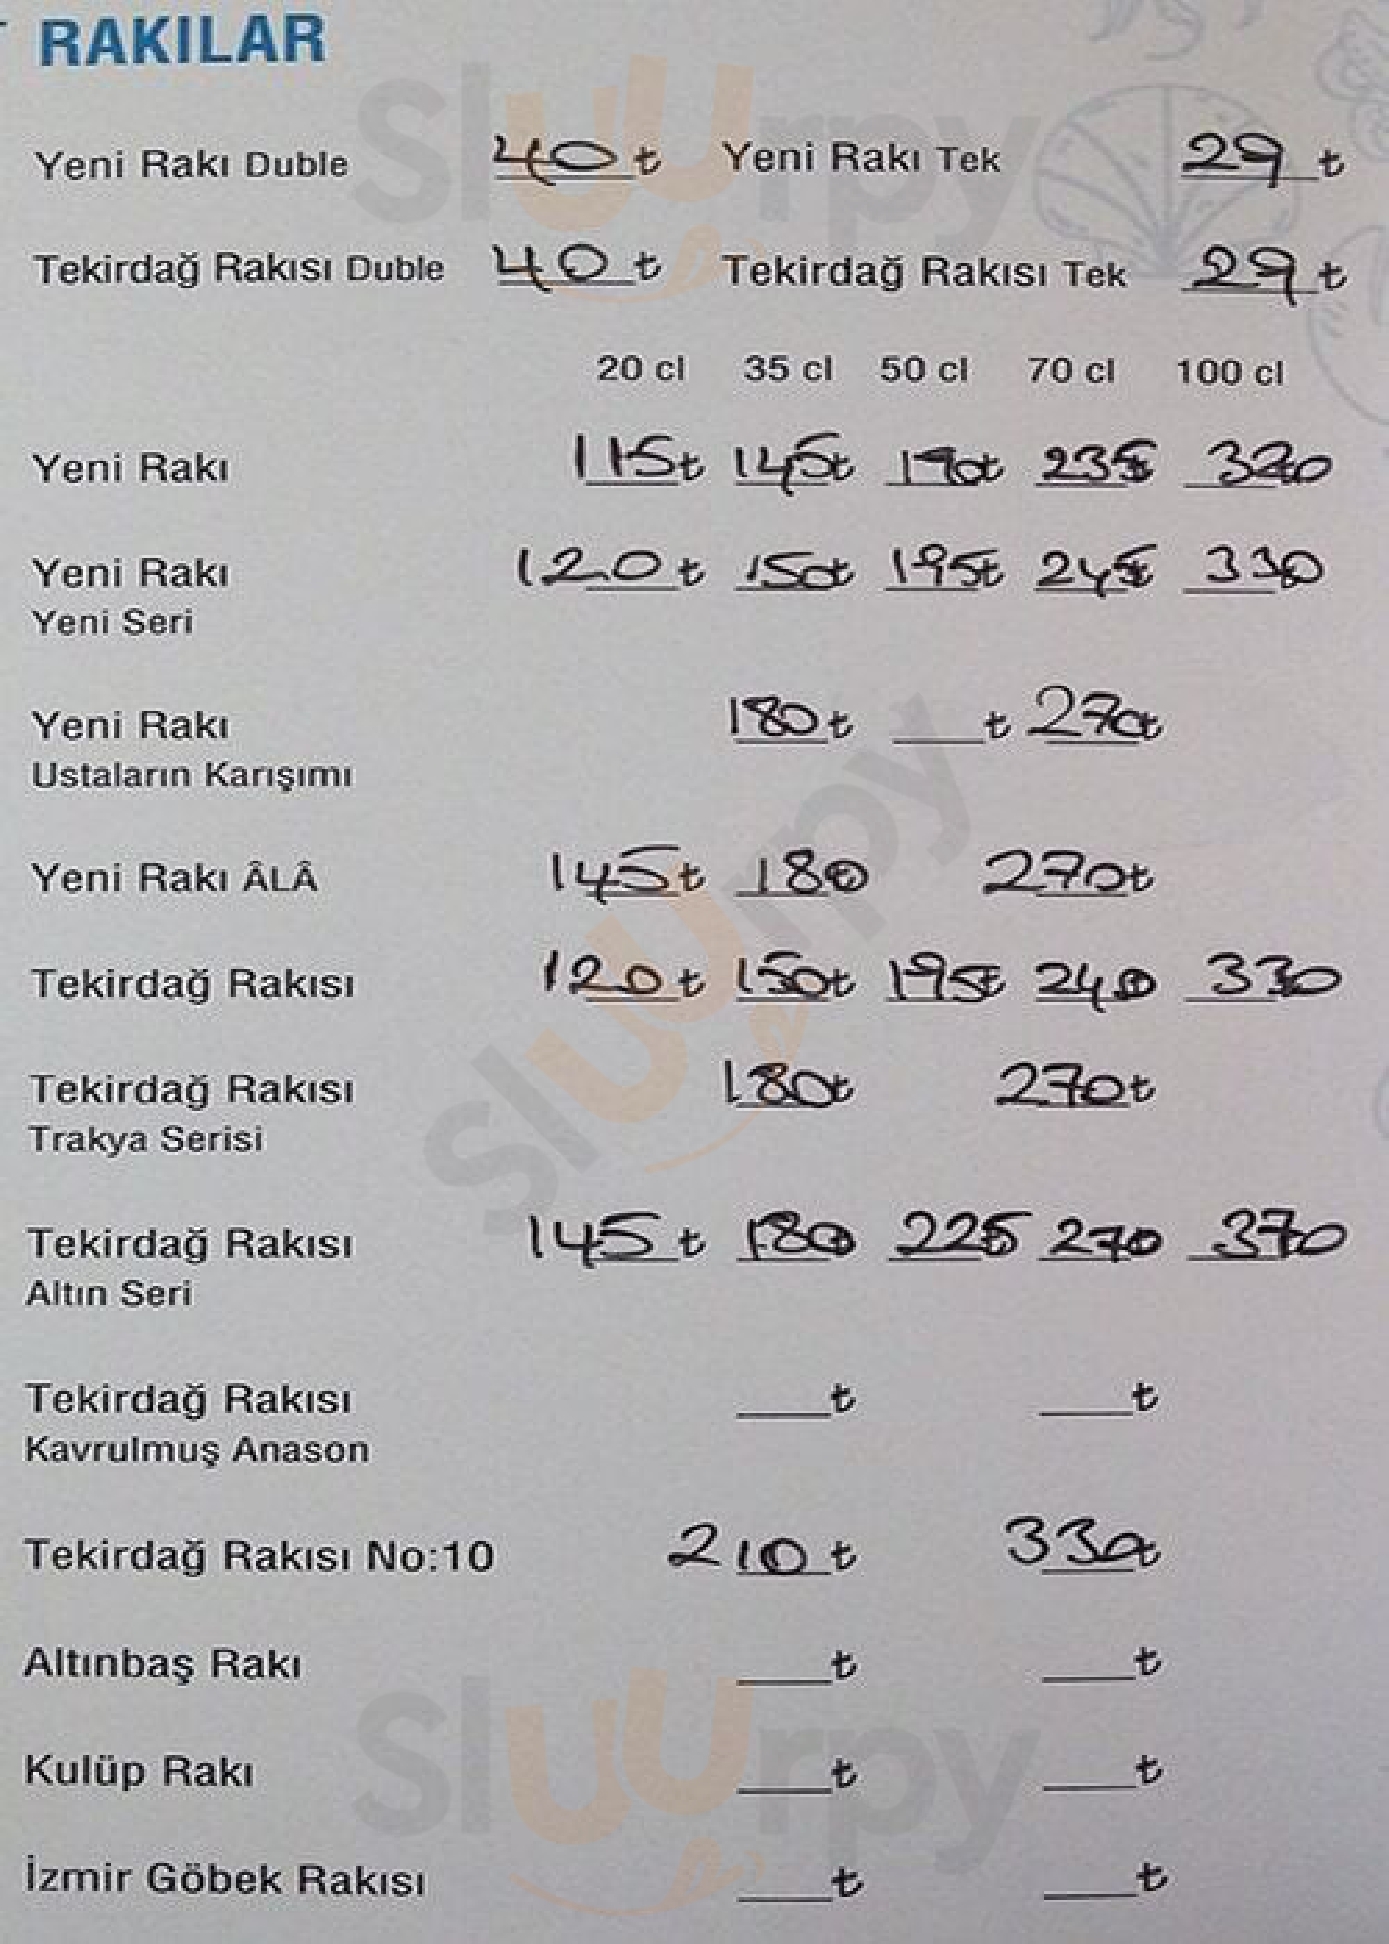 RAKILAR
Yeni Rakı Duble 40 ₺ Yeni Rakı Tek 29 ₺
Tekirdağ Rakısı Duble 40 ₺ Tekirdağ Rakısı Tek 29 ₺
20 cl 35 cl 50 cl 70 cl 100 cl
Yeni Rakı 115₺ 145₺ 190₺ 235₺ 320
Yeni Rakı 120₺ 150₺ 195₺ 245₺ 330
Yeni Seri
Yeni Rakı 180₺ ___₺ 270₺
Ustaların Karışımı
Yeni Rakı ÂLÂ 145₺ 180 270₺
Tekirdağ Rakısı 120₺ 150₺ 195₺ 240 330
Tekirdağ Rakısı 180₺ 270₺
Trakya Serisi
Tekirdağ Rakısı 145₺ 180 225 270 370
Altın Seri
Tekirdağ Rakısı ___₺ ___₺
Kavrulmuş Anason
Tekirdağ Rakısı No:10 210₺ 330₺
Altınbaş Rakı ___₺ ___₺
Kulüp Rakı ___₺ ___₺
İzmir Göbek Rakısı ___₺ ___₺
Sluurpy
Sluurpy
Sluurpy